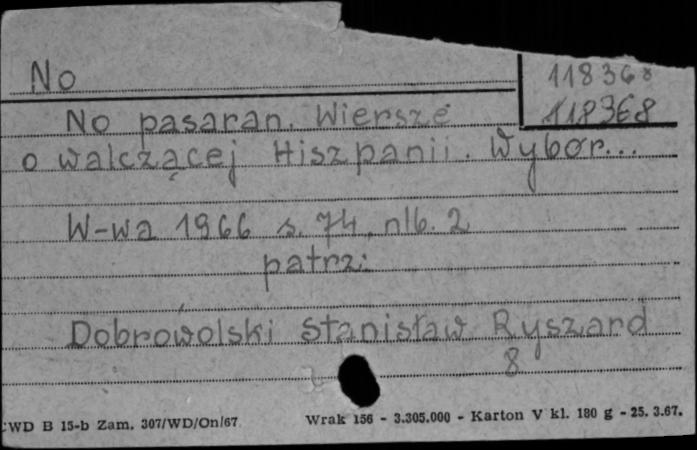 No
118368
118368
No pasaran. Wiersze
o walczącej Hiszpanii. Wybór...
W-wa 1966 s. 74, nlb. 2
patrz:
Dobrowolski Stanisław Ryszard
8
CWD B 15-b Zam. 307/WD/On/67 Wrak 156 - 3.305.000 - Karton V kl. 180 g - 25. 3.67.